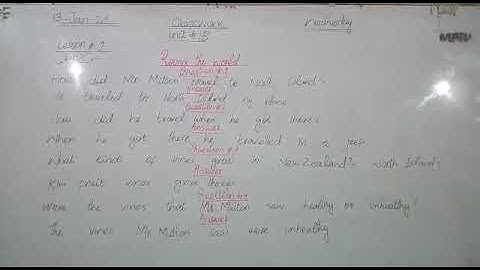 13-Jan-21 Classwork Wednesday
Unit #13
MATH
Lesson #2
Round the world
Question #1
How did Mr Midson travel to North Island?
Answer
He traveled to North Island by plane
How did he travel when he got there?
Answer
When he got there he travelled in a jeep
Question #3
What kind of vines grow in New Zealand's North Island?
Answer
Kiwi fruit vines grow there
Question
Were the vines that Mr. Midson saw healthy or unhealthy?
Answer
The vines Mr Midson saw were unhealthy